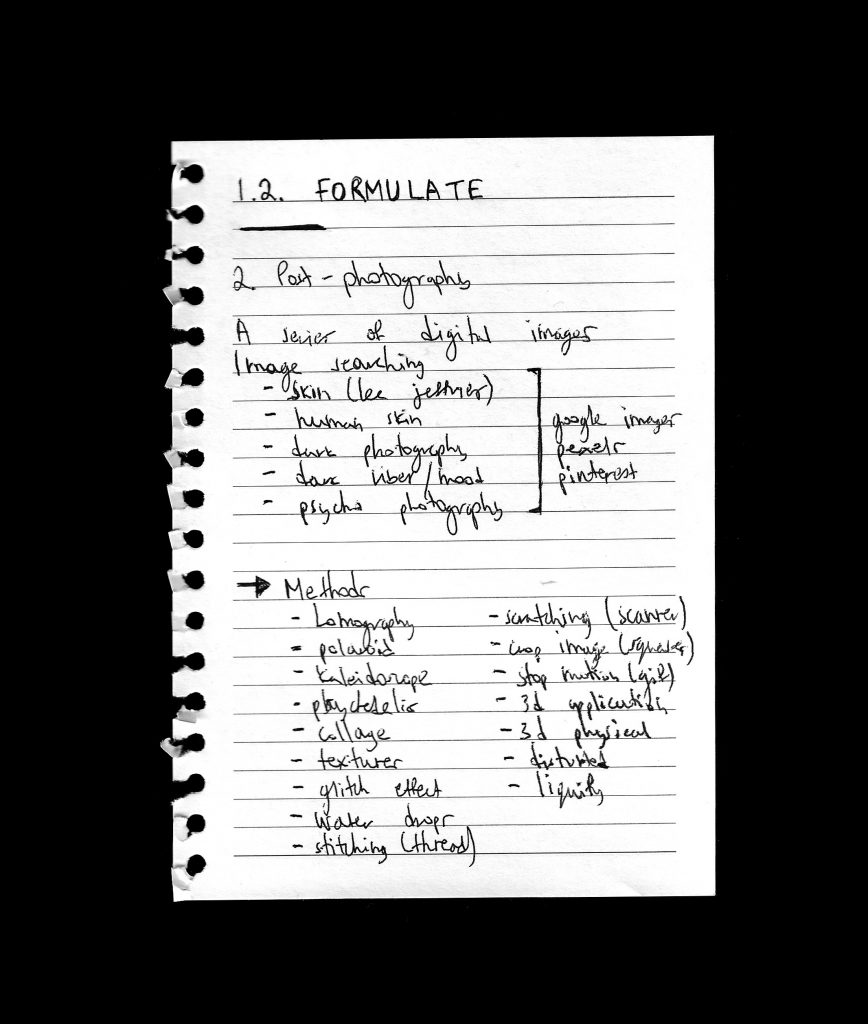 1.2. FORMULATE
2. Post - photography
A series of digital images
Image searching
- skin (lee jeffries)
- human skin
- dark photography
- dark vibes/mood
- psycho photography
google images
pexels
pinterest
→ Methods
- Lomography
- polaroid
- kaleidoscope
- psychedelic
- collage
- textures
- glitch effect
- water drops
- stitching (thread)
- scratching (scanner)
- crop image (squares)
- stop motion (gif)
- 3d application
- 3d physical
- distorted
- liquify